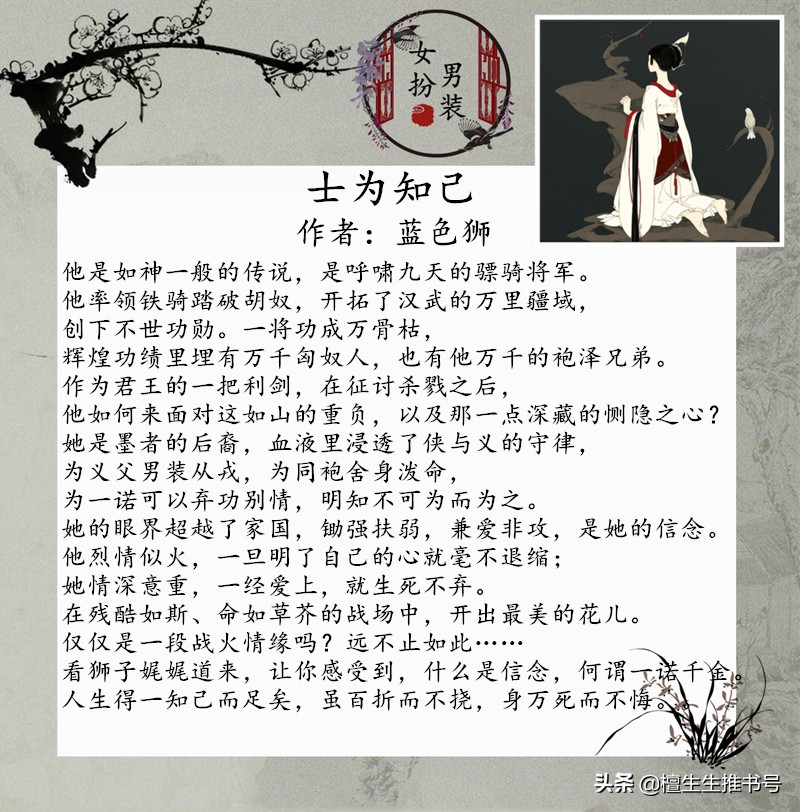 女扮
男装
士为知己
作者：蓝色狮
他是如神一般的传说，是呼啸九天的骠骑将军。
他率领铁骑踏破胡奴，开拓了汉武的万里疆域，
创下不世功勋。一将功成万骨枯，
辉煌功绩里埋有万千匈奴人，也有他万千的袍泽兄弟。
作为君王的一把利剑，在征讨杀戮之后，
他如何来面对这如山的重负，以及那一点深藏的恻隐之心？
她是墨者的后裔，血液里浸透了侠与义的守律，
为义父男装从戎，为同袍舍身泼命，
为一诺可以弃功别情，明知不可为而为之。
她的眼界超越了家国，锄强扶弱，兼爱非攻，是她的信念。
他烈情似火，一旦明了自己的心就毫不退缩；
她情深意重，一经爱上，就生死不弃。
在残酷如斯、命如草芥的战场中，开出最美的花儿。
仅仅是一段战火情缘吗？远不止如此……
看狮子娓娓道来，让你感受到，什么是信念，何谓一诺千金。
人生得一知己而足矣，虽百折而不挠，身万死而不悔。
头条 @檀生生推书号